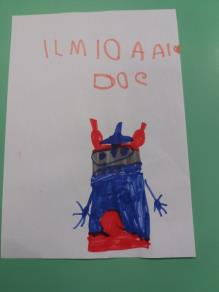 ILMIO AAIC
DOC